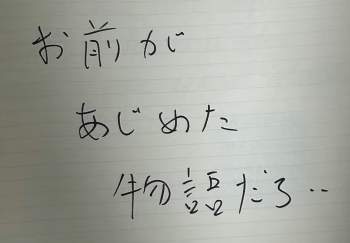 お前が
あじめた
物語だろ‥